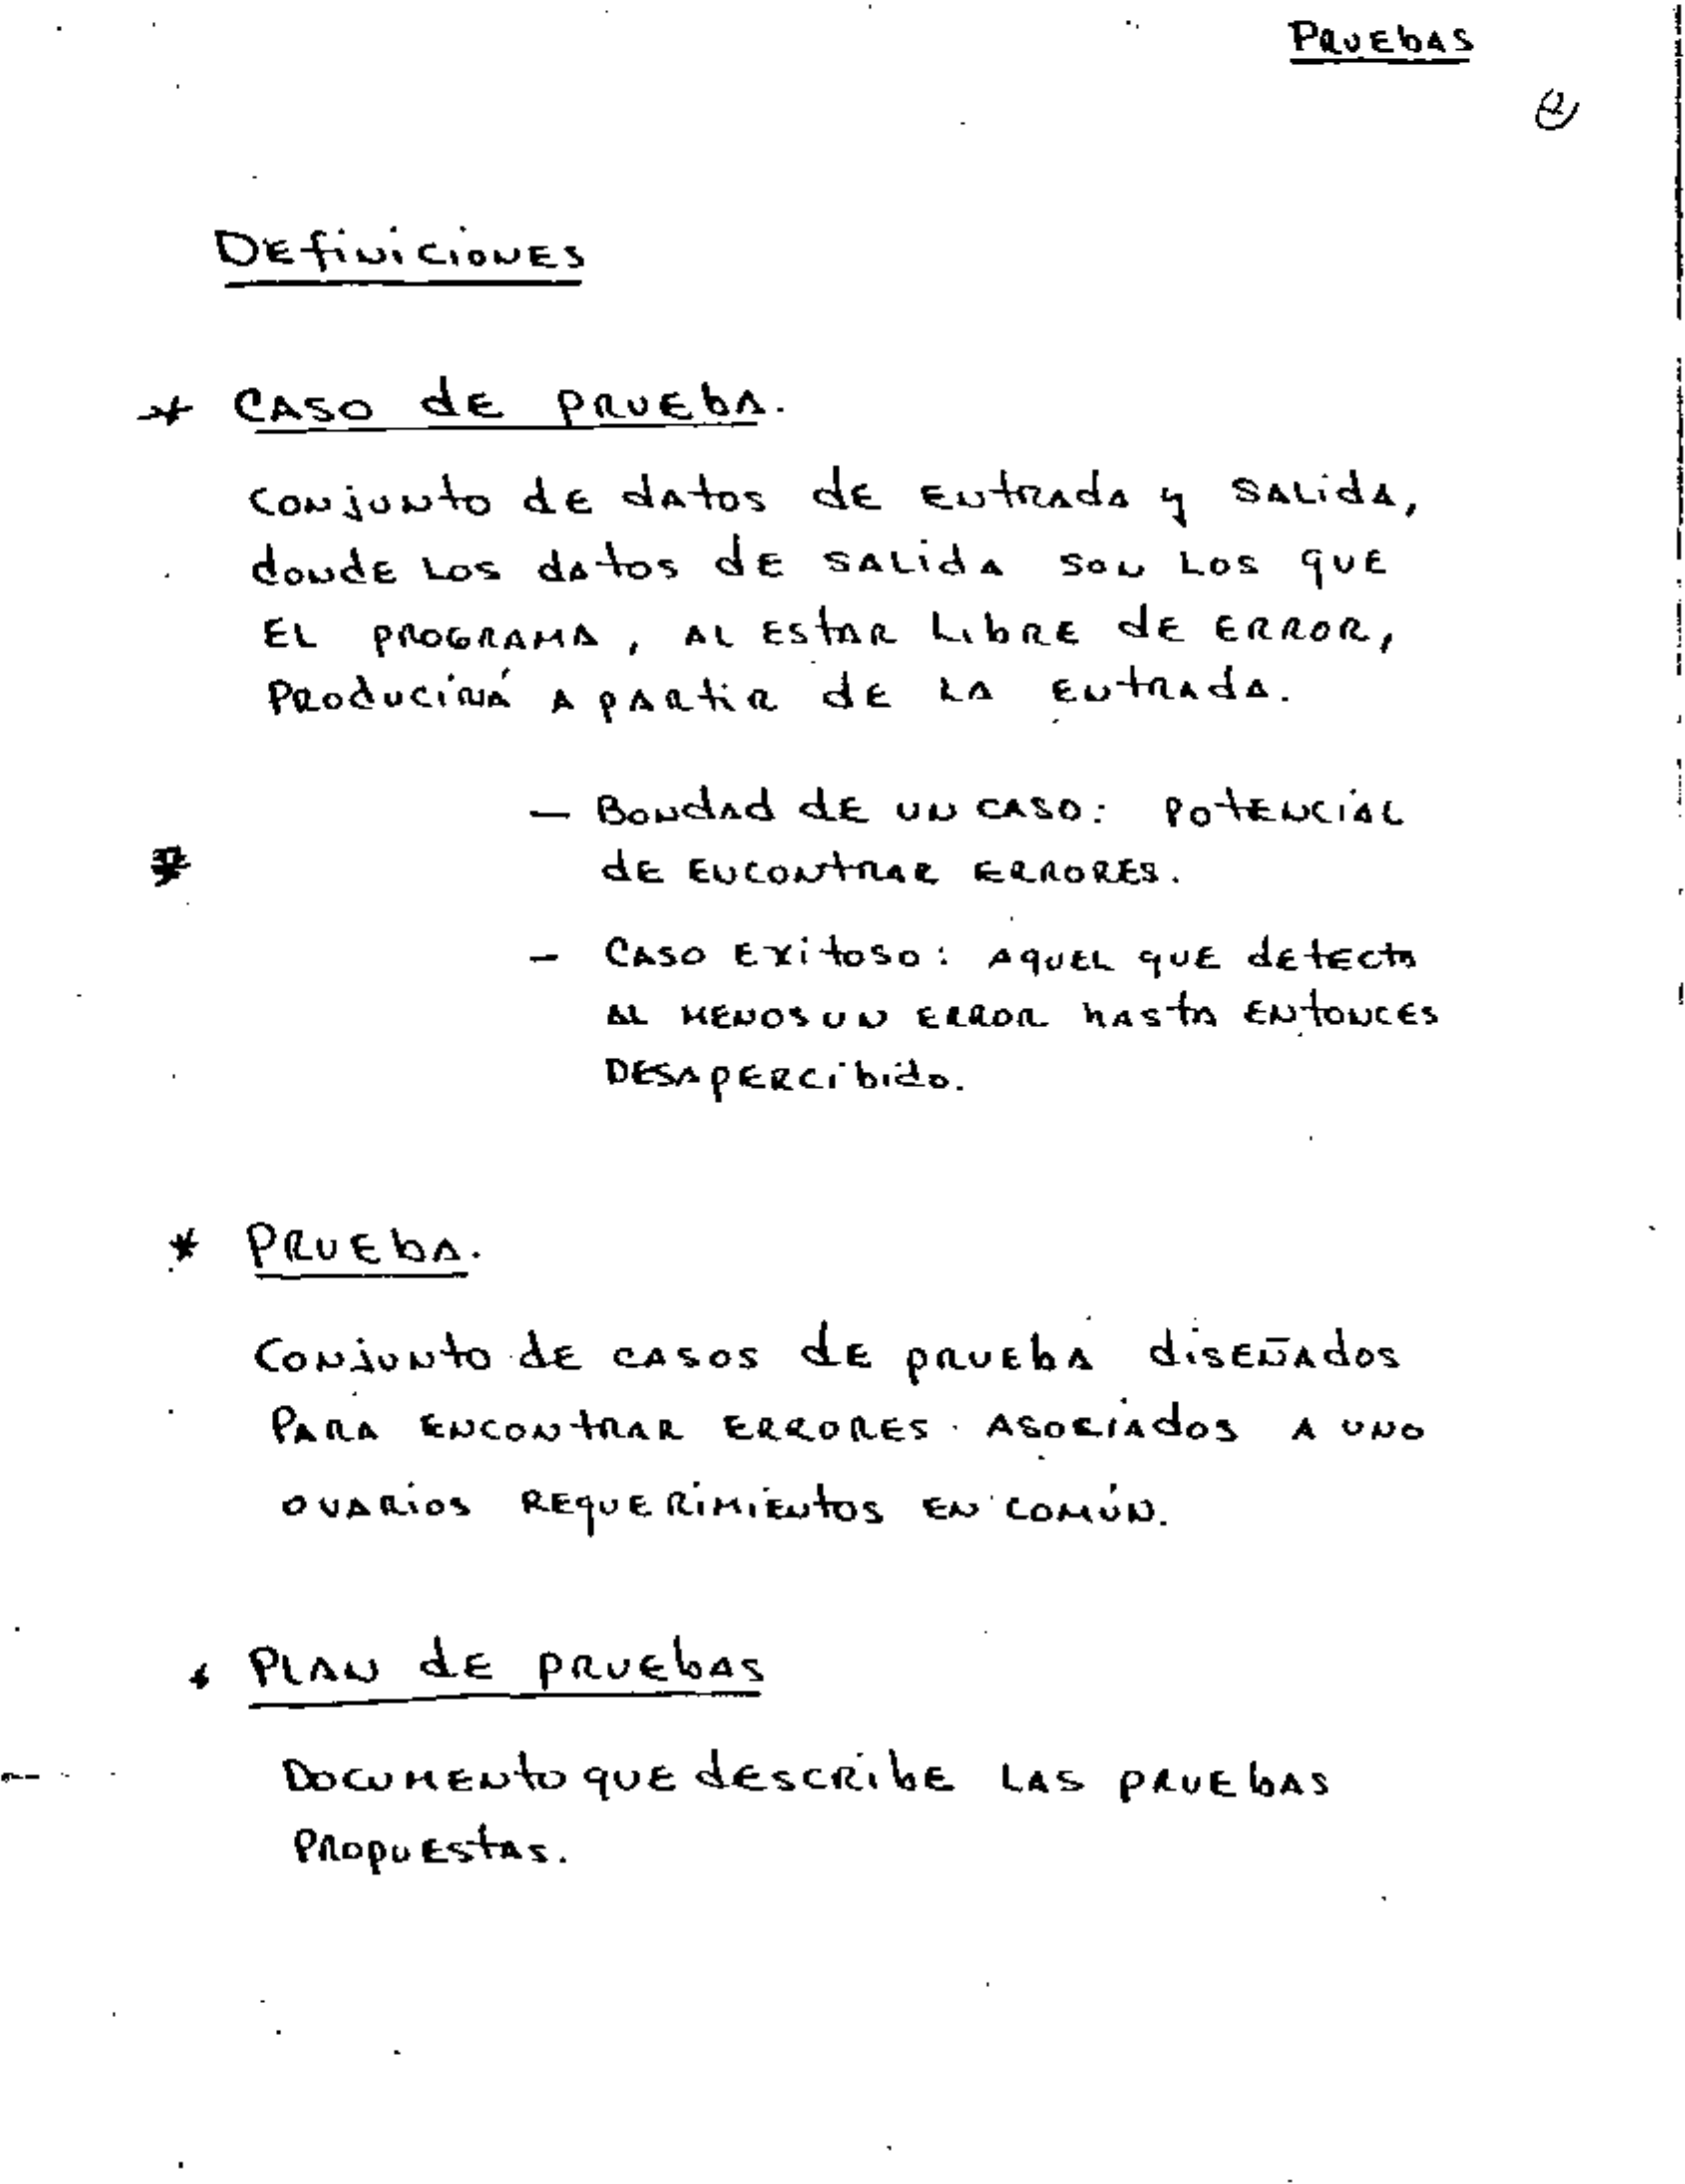 PRUEBAS
2
DEFINICIONES
* CASO DE PRUEBA.
CONJUNTO DE DATOS DE ENTRADA Y SALIDA,
DONDE LOS DATOS DE SALIDA SON LOS QUE
EL PROGRAMA, AL ESTAR LIBRE DE ERROR,
PRODUCIRÁ A PARTIR DE LA ENTRADA.
— BONDAD DE UN CASO: POTENCIAL
DE ENCONTRAR ERRORES.
- CASO EXITOSO: AQUEL QUE DETECTA
AL MENOS UN ERROR HASTA ENTONCES
DESAPERCIBIDO.
* PRUEBA.
CONJUNTO DE CASOS DE PRUEBA DISEÑADOS
PARA ENCONTRAR ERRORES ASOCIADOS A UNO
O VARIOS REQUERIMIENTOS EN COMÚN.
* PLAN DE PRUEBAS
DOCUMENTO QUE DESCRIBE LAS PRUEBAS
PROPUESTAS.